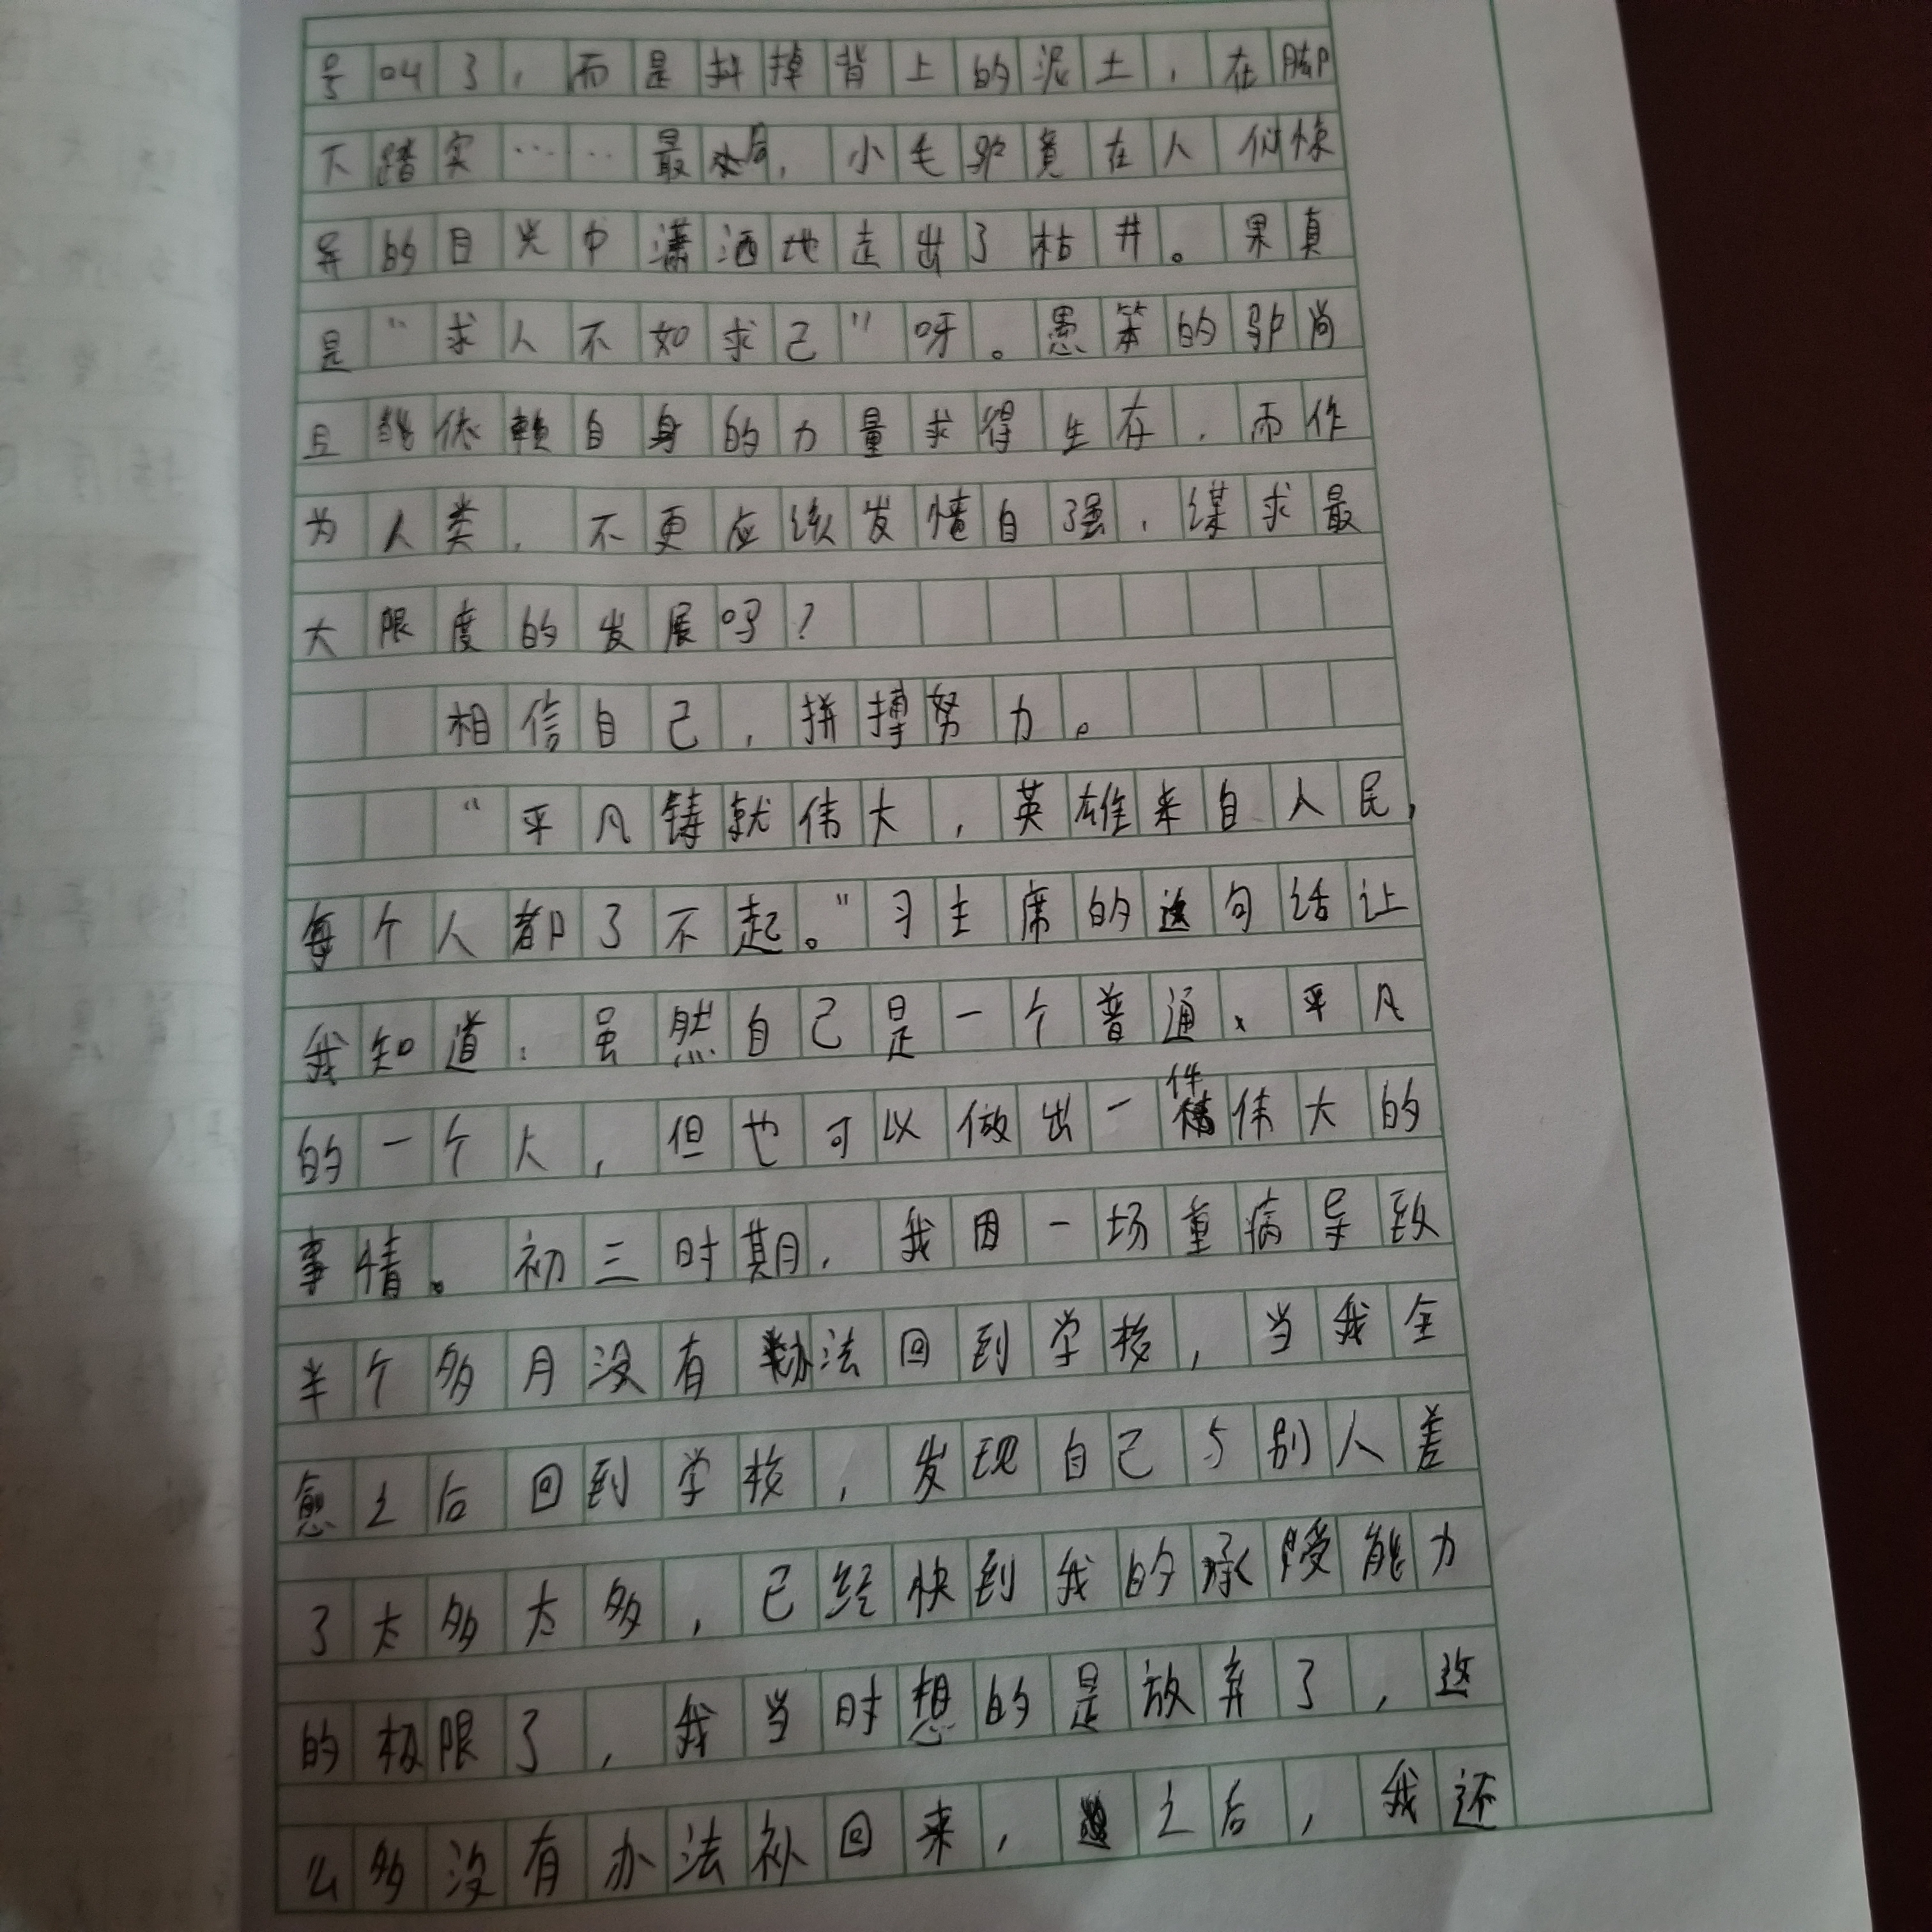 号叫了，而是抖掉背上的泥土，在脚
下踏实……最后，小毛驴竟在人们惊
异的目光中潇洒地走出了枯井。果真
是“求人不如求己”呀。愚笨的驴尚
且能依赖自身的力量求得生存，而作
为人类，不更应该发愤自强，谋求最
大限度的发展吗？
相信自己，拼搏努力。
“平凡铸就伟大，英雄来自人民，
每个人都了不起。”习主席的这句话让
我知道，虽然自己是一个普通、平凡
的一个人，但也可以做出一件伟大的
事情。初三时期，我因一场重病导致
半个多月没有办法回到学校，当我全
愈之后回到学校，发现自己与别人差
了太多太多，已经快到我的承受能力
的极限了，我当时想的是放弃了，这
么多没有办法补回来，之后，我还